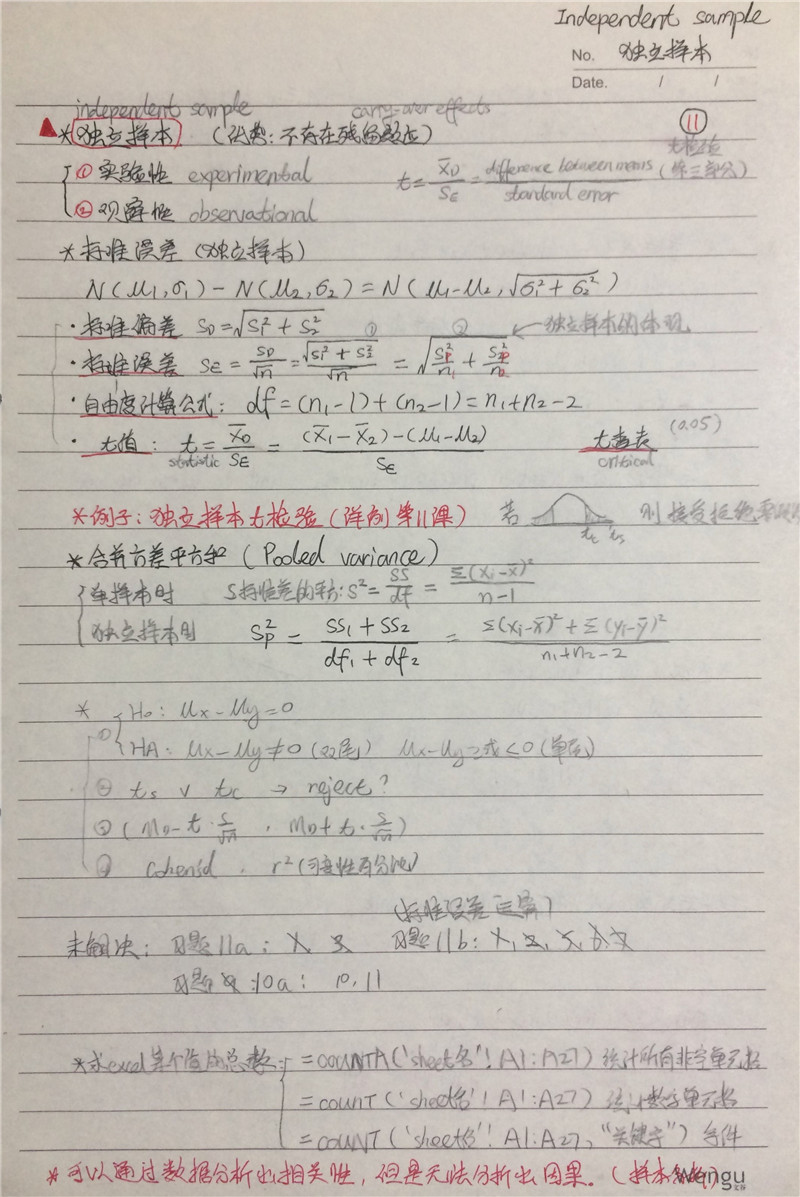 Independent sample
No. 独立样本
Date. / /
independent sample carry-over effects
* 独立样本 (优势:不存在残留效应) ⑪
① 实验性 experimental t = X̄D/SE = difference between means/standard error t检验(第三部分)
② 观察性 observational
* 标准误差(独立样本)
N(μ1,σ1) - N(μ2,σ2) = N(μ1-μ2, √σ1²+σ2²)
· 标准偏差 SD = √S1²+S2² ① ② ← 独立样本的体现
· 标准误差 SE = SD/√n = √S1²+S2²/√n = √Sp²/n1 + Sp²/n2
· 自由度计算公式: df = (n1-1)+(n2-1) = n1+n2-2
· t值: t = X̄D/SE = (X̄1-X̄2)-(μ1-μ2)/SE t查表 (0.05)
statistic critical
* 例子:独立样本t检验(详例第11课) 若 tc ts 则接受拒绝
* 合并方差平方和 (Pooled variance)
单样本时 S标准差的平方: S² = SS/df = Σ(xi-x̄)²/n-1
独立样本时 Sp² = SS1+SS2/df1+df2 = Σ(xi-x̄)²+Σ(yi-ȳ)²/n1+n2-2
* ① H0: μx-μy=0
HA: μx-μy≠0 (双尾) μx-μy>或<0 (单尾)
② ts v tc → reject?
③ (MD-t·S/√n , MD+t·S/√n)
④ Cohen'sd . r²(可变性百分比)
(标准误差)
未解决: 习题11a: 习题11b:
习题10a: 10, 11
*求excel某个值的总数: =COUNTA('sheet名'!A1:A27) 统计所有非空单元格
=COUNT('sheet名'!A1:A27) 统计数字单元格
=COUNT('sheet名'!A1:A27,"关键字") 条件
* 可以通过数据分析出相关性,但是无法分析出因果。(样本
Wengu